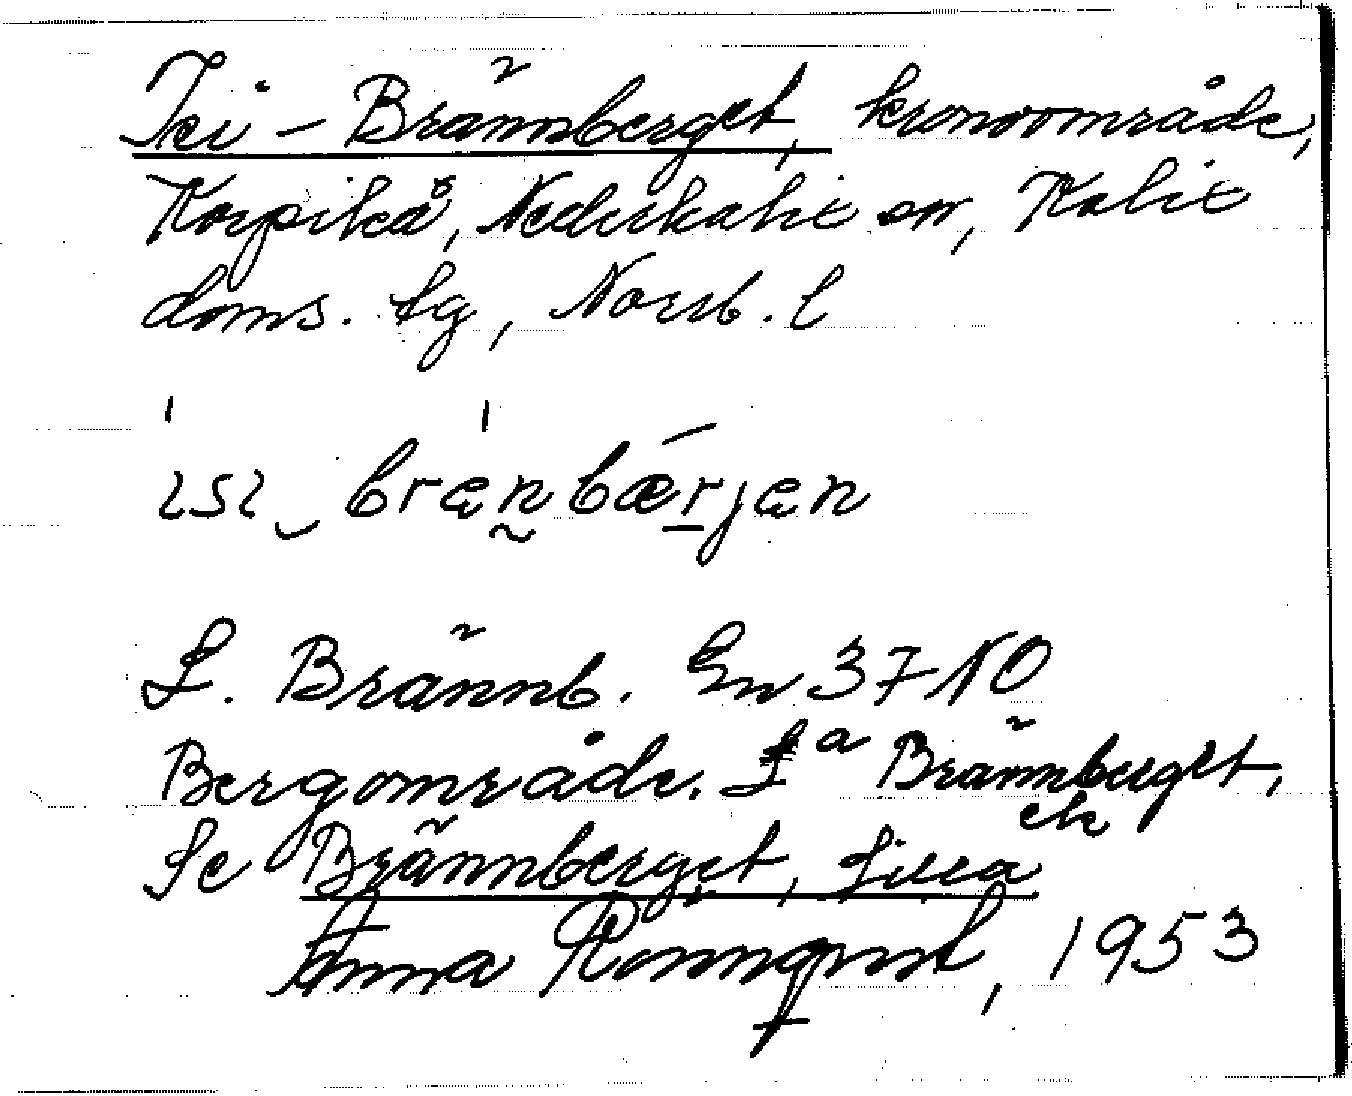 Isi-Brännberget, kronoområde,
Korpikå, Nederkalix sn, Kalix
doms. sg, Norrb. l
ɩsɩ brænbærjæn
L. Brännb. En 37 NO
Bergområde. L a Brännberget,
ek
Se Brännberget, Lilla
Anna Rönnqvist, 1953